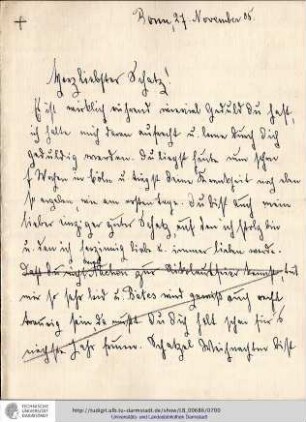 Bonn, 27 November 05.
Herzliebster Schatz!
Es ist wirklich rührend, wieviel Geduld Du hast,
ich halte mich daran aufrecht u. lerne durch Dich
geduldig werden. Du liegst heute nun schon
Wochen in Cöln u trägst Deine Krankheit noch eben
so ergeben, wie am ersten Tage. Du bist auch mein
lieber einziger guter Schatz, auf den ich stolz bin
u den ich herzinnig liebe u. immer lieben werde.
Daß Du nicht zur Nikolausfeier kannst, tut
mir so sehr leid u. wird gewiß auch recht
traurig sein, da mußt Du Dich halt schon für's
nächste Jahr freuen. Schatzel Weihnachten bist
TECHNISCHE
UNIVERSITÄT
DARMSTADT
http://tudigit.ulb.tu-darmstadt.de/show/LB_00686/0700
Universitäts- und Landesbibliothek Darmstadt